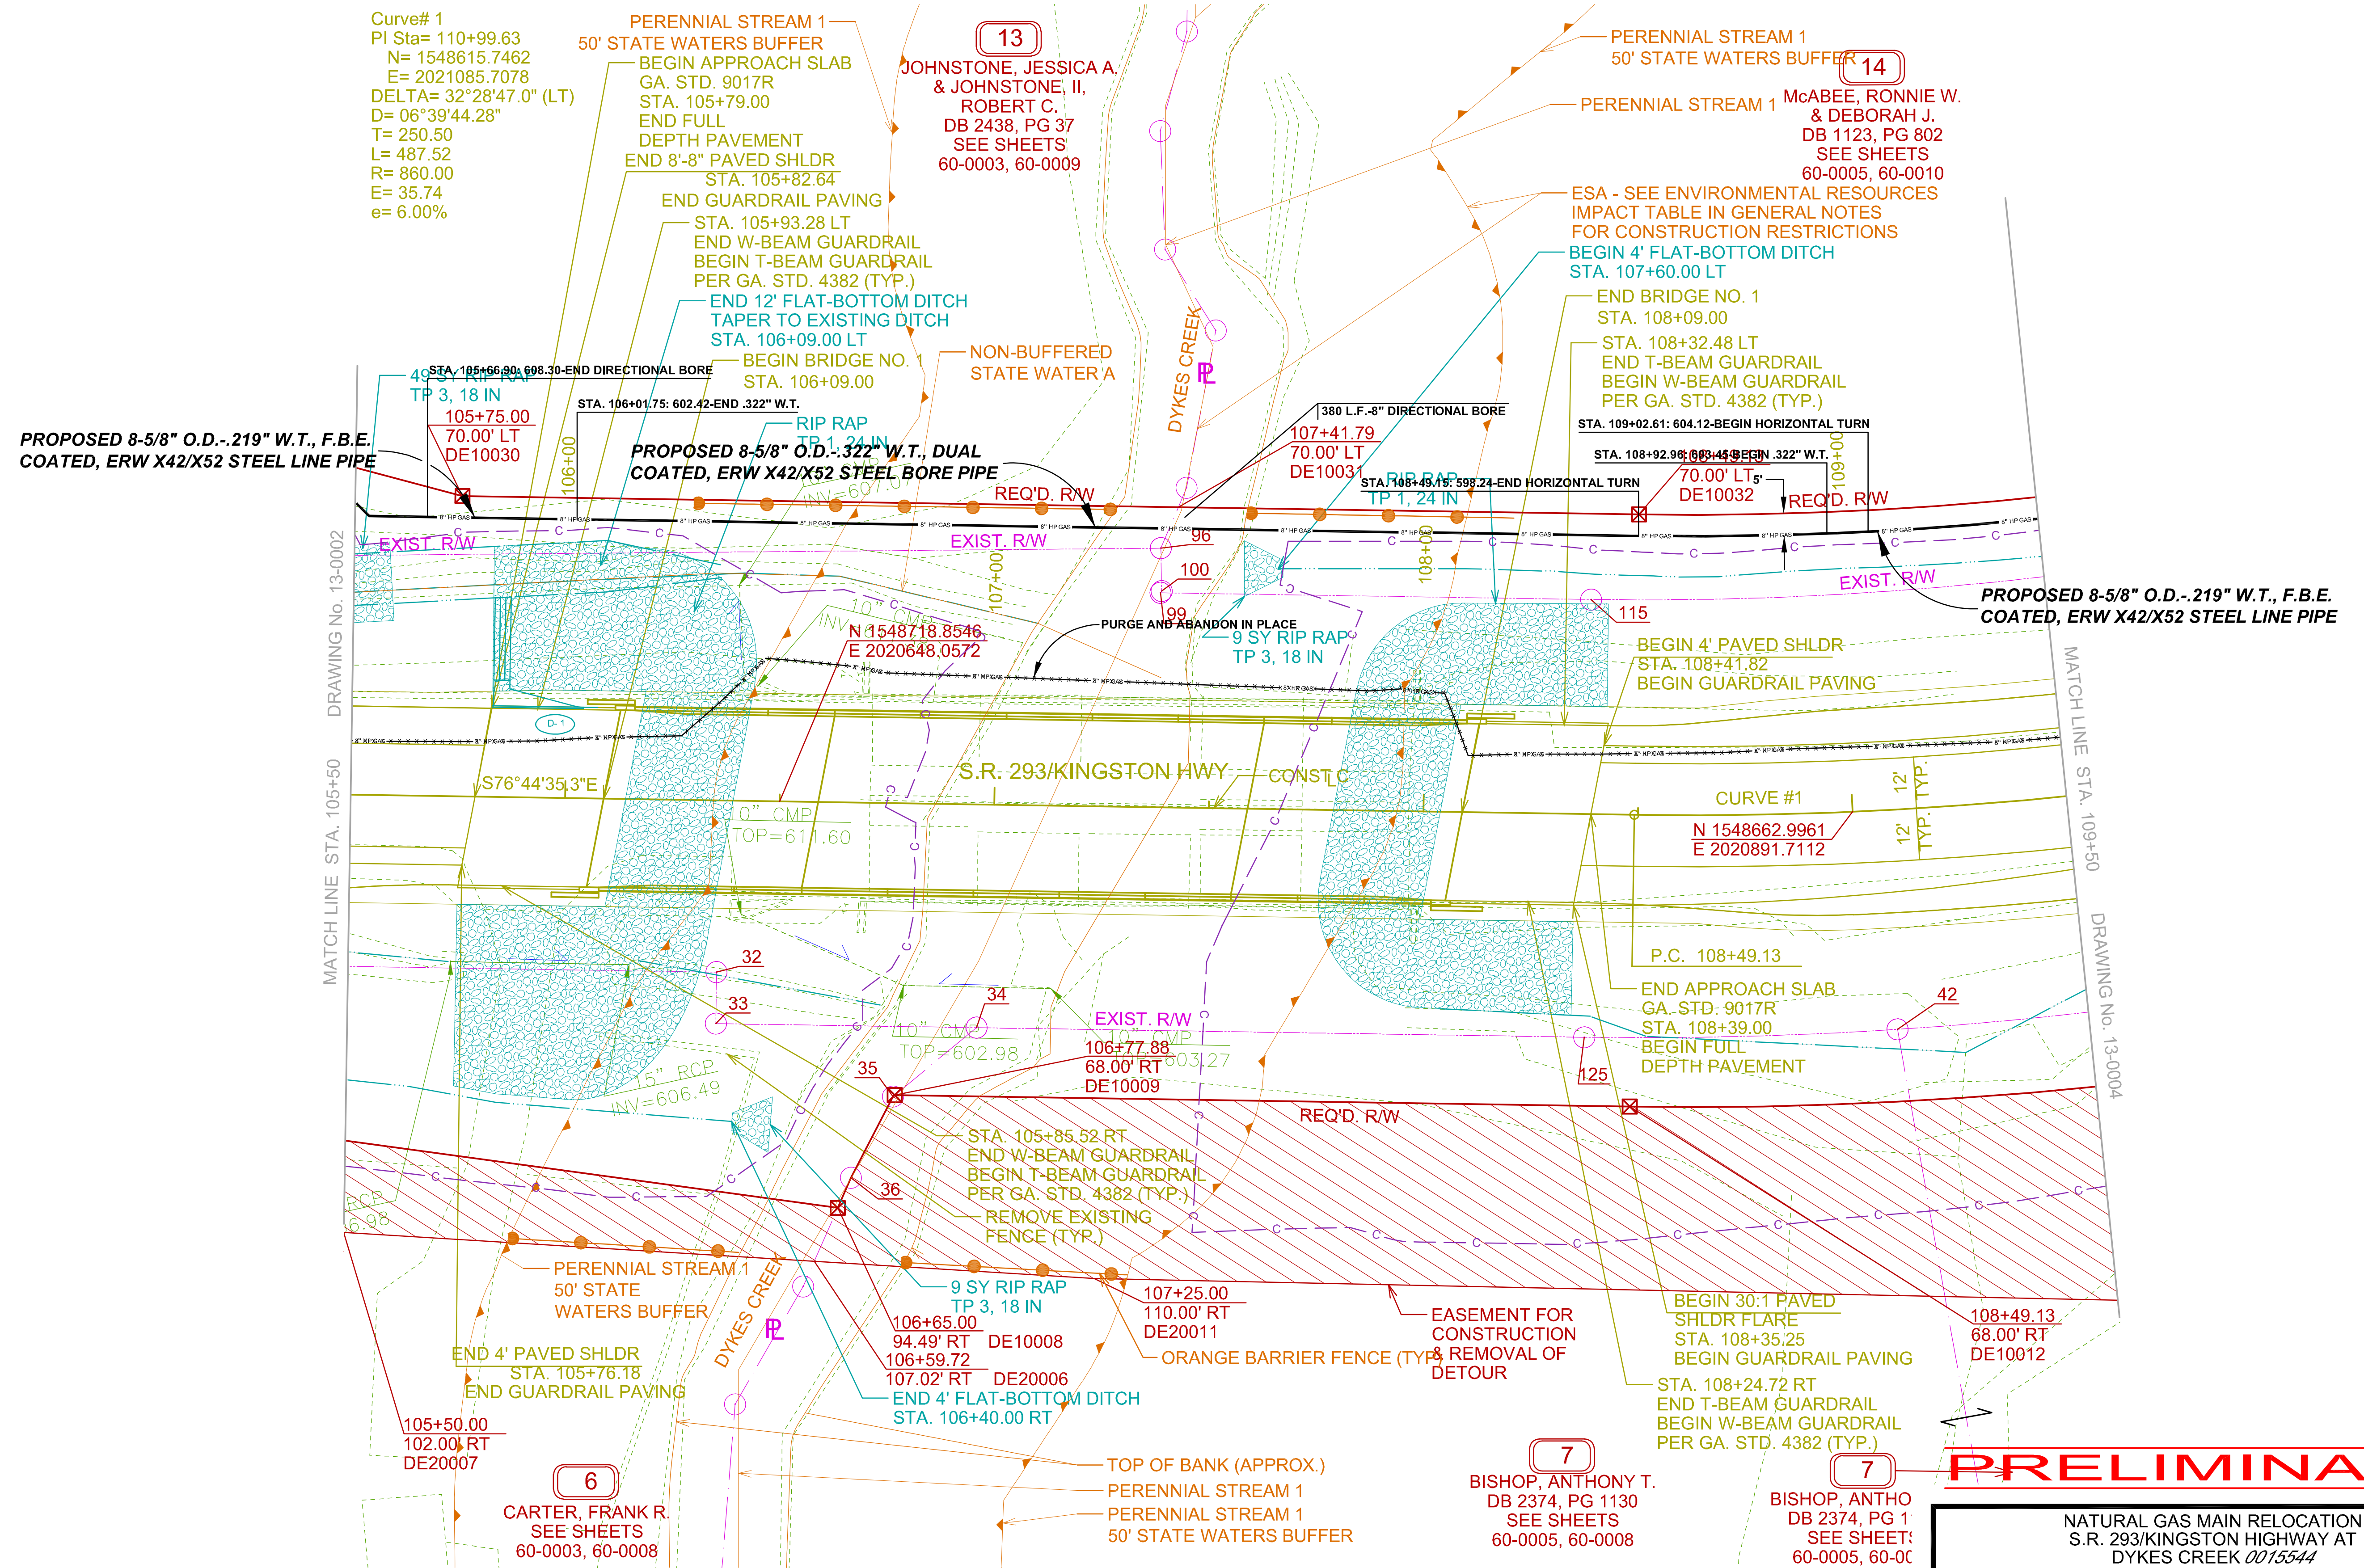 Curve# 1
PI Sta= 110+99.63
N= 1548615.7462
E= 2021085.7078
DELTA= 32°28'47.0" (LT)
D= 06°39'44.28"
T= 250.50
L= 487.52
R= 860.00
E= 35.74
e= 6.00%
PERENNIAL STREAM 1
50' STATE WATERS BUFFER
BEGIN APPROACH SLAB
GA. STD. 9017R
STA. 105+79.00
END FULL
DEPTH PAVEMENT
END 8'-8" PAVED SHLDR
STA. 105+82.64
END GUARDRAIL PAVING
STA. 105+93.28 LT
END W-BEAM GUARDRAIL
BEGIN T-BEAM GUARDRAIL
PER GA. STD. 4382 (TYP.)
END 12' FLAT-BOTTOM DITCH
TAPER TO EXISTING DITCH
STA. 106+09.00 LT
BEGIN BRIDGE NO. 1
STA. 106+09.00
13
JOHNSTONE, JESSICA A.
& JOHNSTONE, II,
ROBERT C.
DB 2438, PG 37
SEE SHEETS
60-0003, 60-0009
NON-BUFFERED
STATE WATER A
DYKES CREEK
PL
PERENNIAL STREAM 1
50' STATE WATERS BUFFER
PERENNIAL STREAM 1
14
McABEE, RONNIE W.
& DEBORAH J.
DB 1123, PG 802
SEE SHEETS
60-0005, 60-0010
ESA - SEE ENVIRONMENTAL RESOURCES
IMPACT TABLE IN GENERAL NOTES
FOR CONSTRUCTION RESTRICTIONS
BEGIN 4' FLAT-BOTTOM DITCH
STA. 107+60.00 LT
END BRIDGE NO. 1
STA. 108+09.00
STA. 108+32.48 LT
END T-BEAM GUARDRAIL
BEGIN W-BEAM GUARDRAIL
PER GA. STD. 4382 (TYP.)
49 SY RIP RAP
TP 3, 18 IN
STA. 105+66.90: 608.30-END DIRECTIONAL BORE
STA. 106+01.75: 602.42-END .322" W.T.
105+75.00
70.00' LT
DE10030
PROPOSED 8-5/8" O.D.-.219" W.T., F.B.E.
COATED, ERW X42/X52 STEEL LINE PIPE
106+00
RIP RAP
TP 1, 24 IN
PROPOSED 8-5/8" O.D.-.322" W.T., DUAL
COATED, ERW X42/X52 STEEL BORE PIPE
380 L.F.-8" DIRECTIONAL BORE
107+41.79
70.00' LT
DE10031
RIP RAP
TP 1, 24 IN
STA. 109+02.61: 604.12-BEGIN HORIZONTAL TURN
STA. 108+92.96: 603.45-BEGIN .322" W.T.
STA. 108+49.15: 598.24-END HORIZONTAL TURN
108+49.13
70.00' LT
DE10032
5'
109+00
REQ'D. R/W
REQ'D. R/W
8" HP GAS
EXIST. R/W
EXIST. R/W
EXIST. R/W
107+00
108+00
96
100
99
115
PROPOSED 8-5/8" O.D.-.219" W.T., F.B.E.
COATED, ERW X42/X52 STEEL LINE PIPE
10" CMP
N 1548718.8546
E 2020648.0572
PURGE AND ABANDON IN PLACE
9 SY RIP RAP
TP 3, 18 IN
BEGIN 4' PAVED SHLDR
STA. 108+41.82
BEGIN GUARDRAIL PAVING
DRAWING No. 13-0002
MATCH LINE STA. 105+50
D-1
S76°44'35.3"E
S.R. 293/KINGSTON HWY
CONST CL
CURVE #1
N 1548662.9961
E 2020891.7112
12' TYP.
12' TYP.
MATCH LINE STA. 109+50
DRAWING No. 13-0004
0" CMP
TOP=611.60
P.C. 108+49.13
32
33
34
35
36
42
125
END APPROACH SLAB
GA. STD. 9017R
STA. 108+39.00
BEGIN FULL
DEPTH PAVEMENT
EXIST. R/W
10" CMP
TOP=602.98
10" CMP
603.27
106+77.88
68.00' RT
DE10009
15" RCP
INV=606.49
RCP
6.98
REQ'D. R/W
STA. 105+85.52 RT
END W-BEAM GUARDRAIL
BEGIN T-BEAM GUARDRAIL
PER GA. STD. 4382 (TYP.)
REMOVE EXISTING
FENCE (TYP.)
PERENNIAL STREAM 1
50' STATE
WATERS BUFFER
DYKES CREEK
PL
9 SY RIP RAP
TP 3, 18 IN
106+65.00
94.49' RT DE10008
106+59.72
107.02' RT DE20006
END 4' FLAT-BOTTOM DITCH
STA. 106+40.00 RT
107+25.00
110.00' RT
DE20011
ORANGE BARRIER FENCE (TYP)
EASEMENT FOR
CONSTRUCTION
& REMOVAL OF
DETOUR
BEGIN 30:1 PAVED
SHLDR FLARE
STA. 108+35.25
BEGIN GUARDRAIL PAVING
108+49.13
68.00' RT
DE10012
STA. 108+24.72 RT
END T-BEAM GUARDRAIL
BEGIN W-BEAM GUARDRAIL
PER GA. STD. 4382 (TYP.)
END 4' PAVED SHLDR
STA. 105+76.18
END GUARDRAIL PAVING
105+50.00
102.00' RT
DE20007
6
CARTER, FRANK R.
SEE SHEETS
60-0003, 60-0008
TOP OF BANK (APPROX.)
PERENNIAL STREAM 1
PERENNIAL STREAM 1
50' STATE WATERS BUFFER
7
BISHOP, ANTHONY T.
DB 2374, PG 1130
SEE SHEETS
60-0005, 60-0008
7
BISHOP, ANTHO
DB 2374, PG 1
SEE SHEETS
60-0005, 60-00
PRELIMINA
NATURAL GAS MAIN RELOCATION
S.R. 293/KINGSTON HIGHWAY AT
DYKES CREEK 0015544